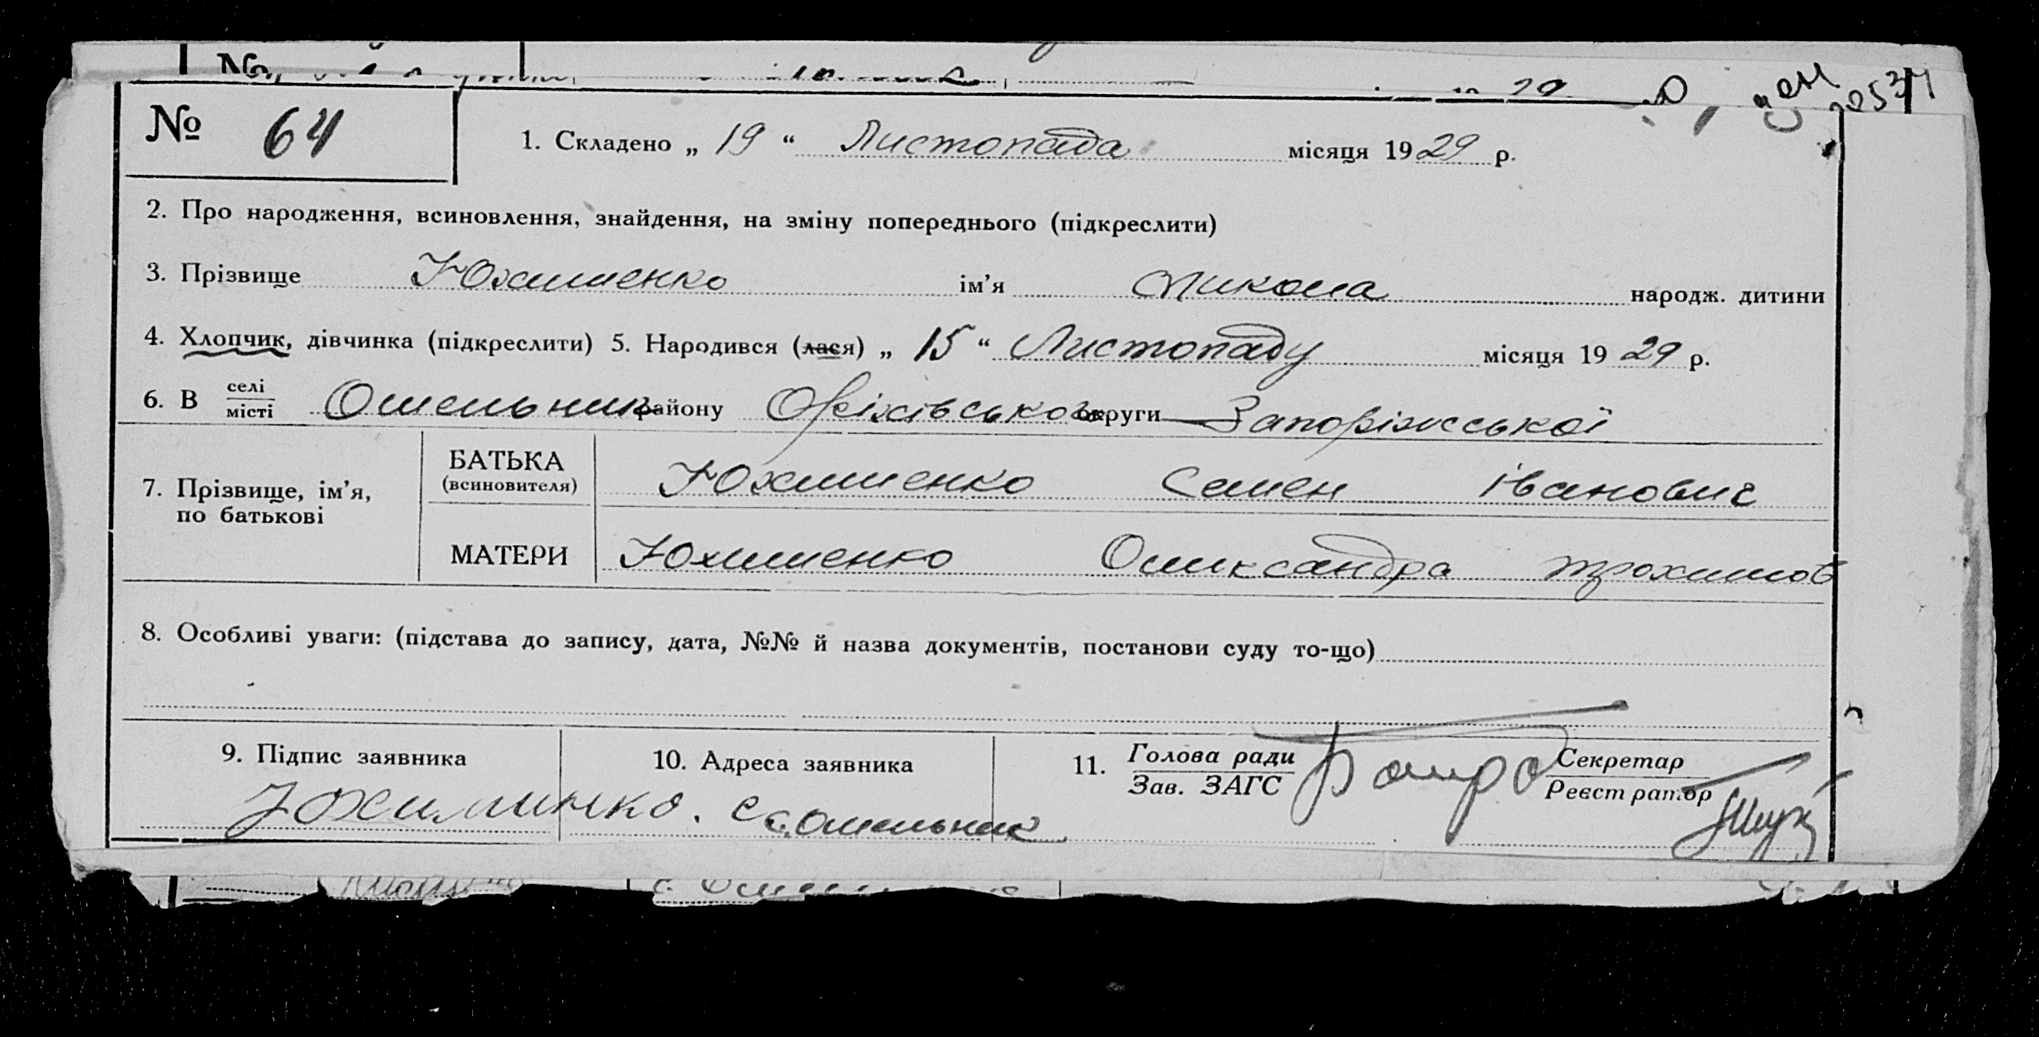 № 64
1. Складено „ 19 “ Листопада місяця 1929 р.
2. Про народження, всиновлення, знайдення, на зміну попереднього (підкреслити)
3. Прізвище Юхименко ім’я Микола народж. дитини
4. Хлопчик, дівчинка (підкреслити) 5. Народився (лася) „ 15 “ Листопаду місяця 1929 р.
6. В селі місті Омельник району Оріхівського округи Запоріжської
7. Прізвище, ім’я, по батькові
БАТЬКА (всиновителя) Юхименко Семен Іванович
МАТЕРИ Юхименко Олександра Трохимов
8. Особливі уваги: (підстава до запису, дата, №№ й назва документів, постанови суду то-що)
9. Підпис заявника 10. Адреса заявника 11. Голова ради Зав. ЗАГС Секретар Реєстратор
Юхиминко. С с. Омельник